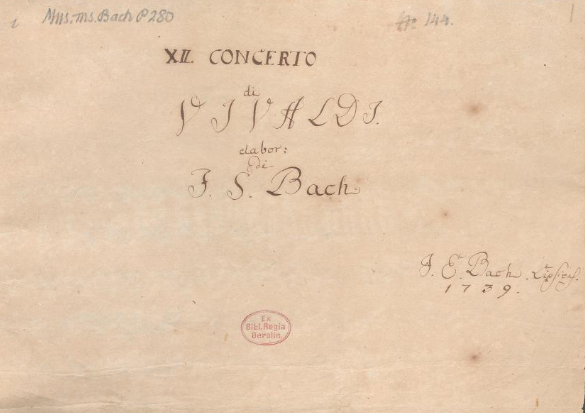 Mus. ms. Bach P 280
No 144.
XII. CONCERTO
di
VIVALDI.
elabor:
di
J. S. Bach.
J. E. Bach. Lipsiens.
1739.
Ex
Bibl. Regia
Berolin.